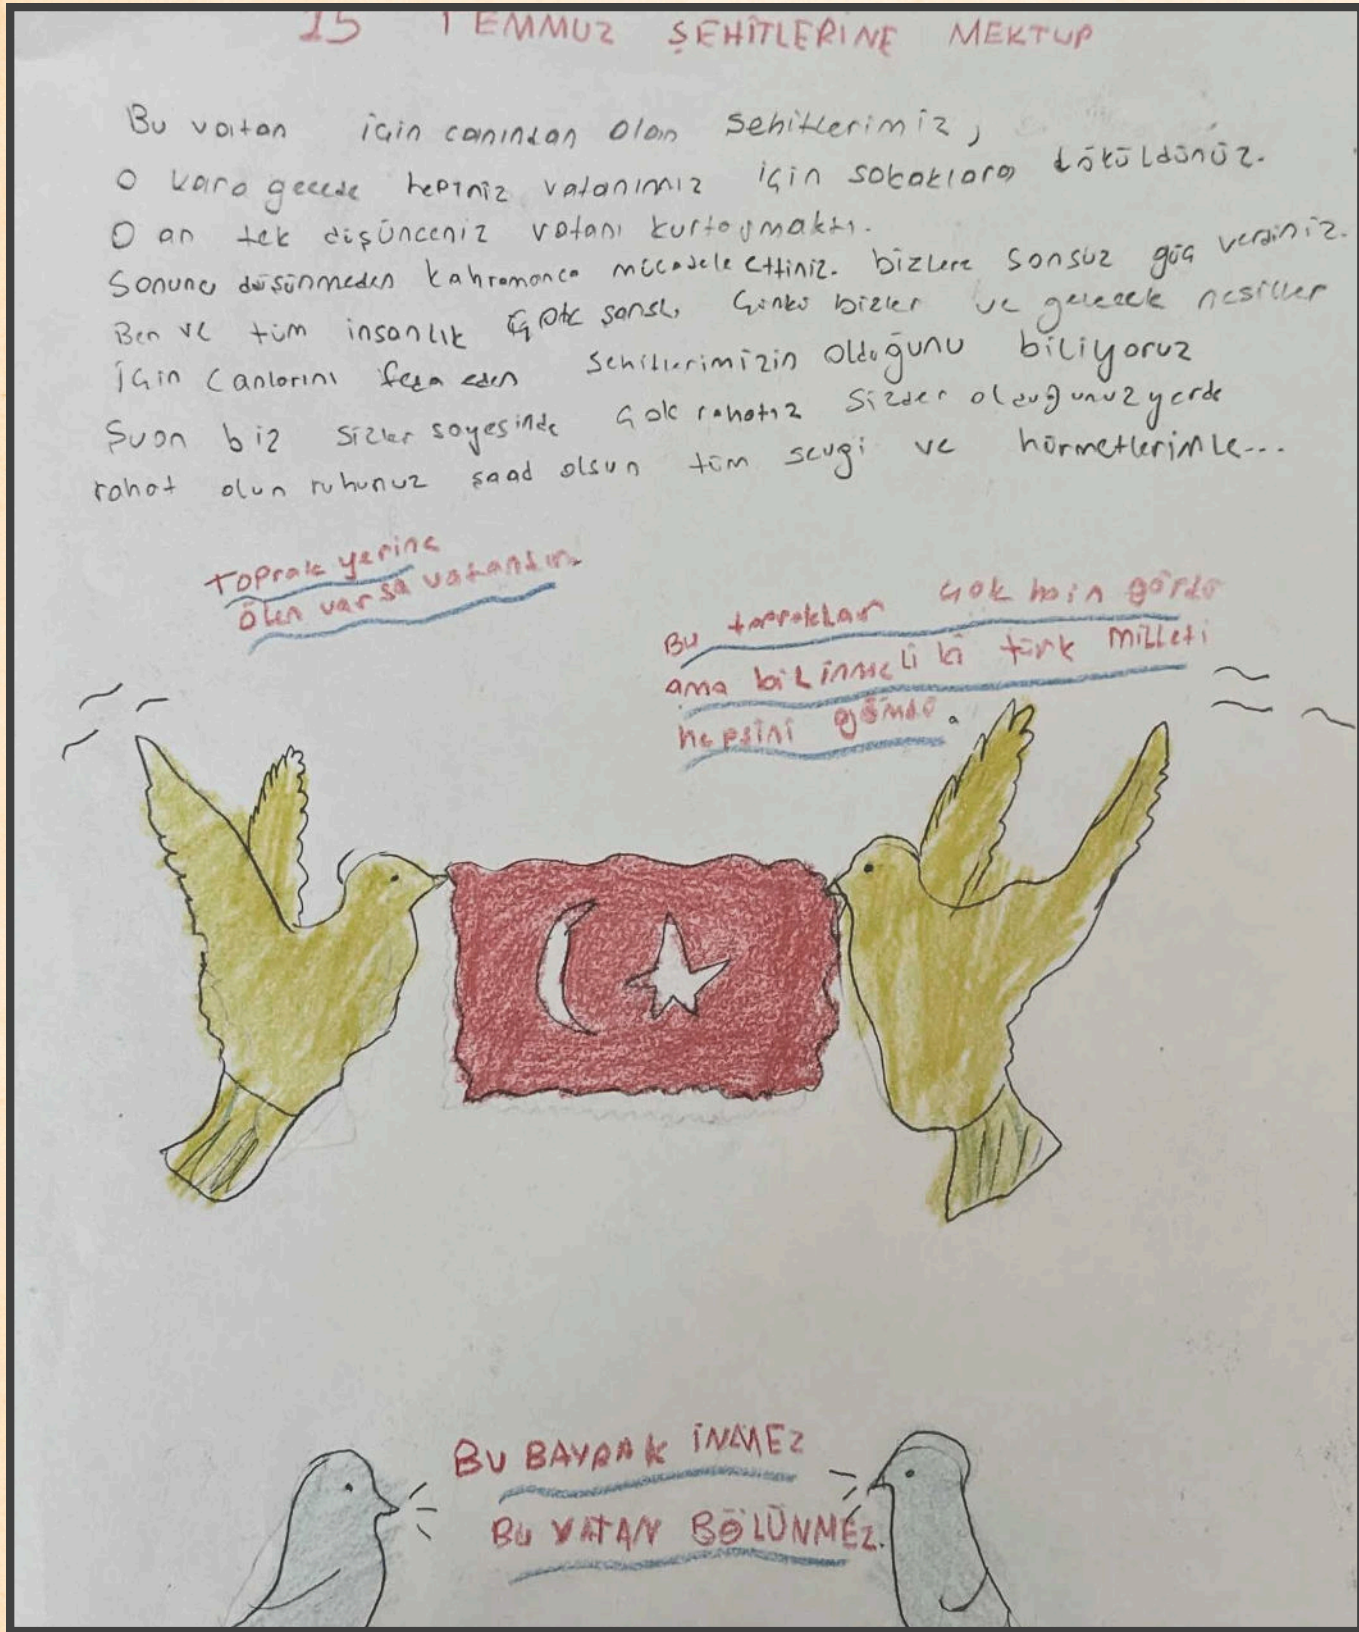 15 TEMMUZ ŞEHİTLERİNE MEKTUP
Bu vatan için canından olan şehitlerimiz,
O kara gecede hepiniz vatanımız için sokaklara döküldünüz.
O an tek düşünceniz vatanı kurtarmaktı.
Sonunu düşünmeden kahramanca mücadele ettiniz. bizlere sonsuz güç verdiniz.
Ben ve tüm insanlık çok şanslı çünkü bizler ve gelecek nesiller
için canlarını feda eden şehitlerimizin olduğunu biliyoruz
Şuan biz sizler sayesinde çok rahatız sizder olduğunuz yerde
rahat olun ruhunuz şaad olsun tüm sevgi ve hürmetlerimle...
Toprak yerine
ölen varsa vatandır.
Bu topraklar çok hain gördü
ama bilinmeli ki türk milleti
hepsini gömdü.
BU BAYRAK İNMEZ
BU VATAN BÖLÜNMEZ.